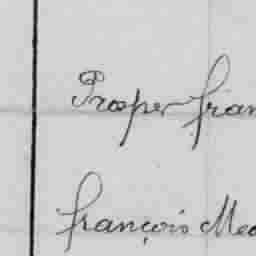 Prosper fran
françois Med